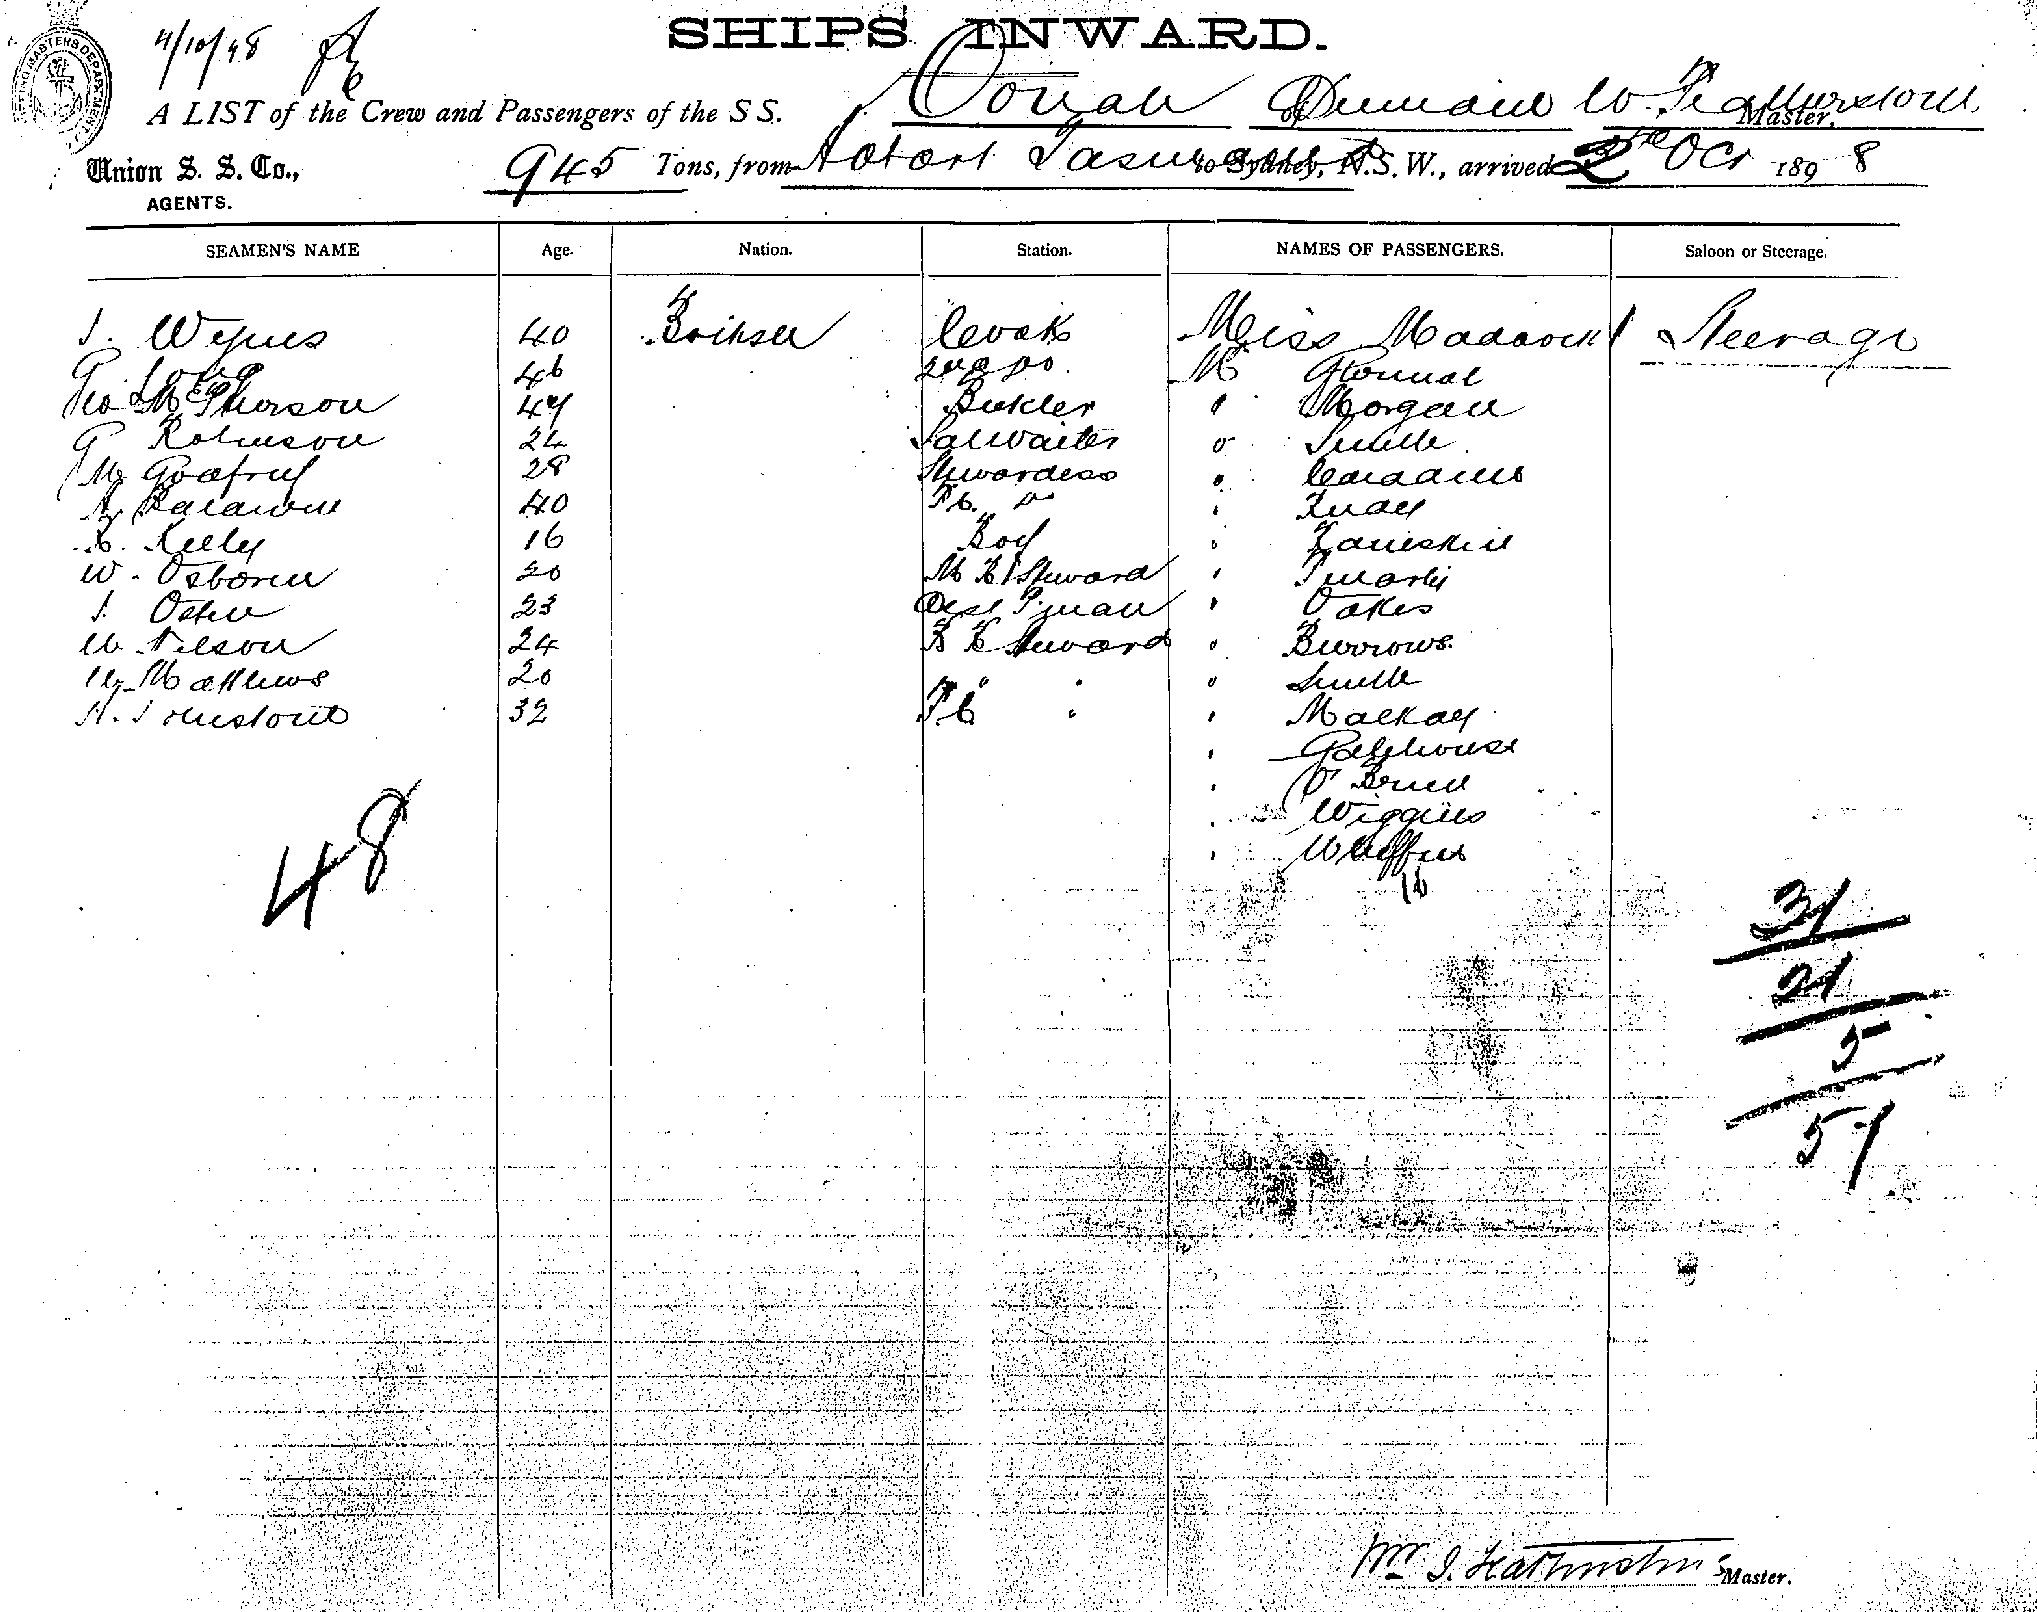 SHIPS INWARD.
4/10/98
A LIST of the Crew and Passengers of the S S. Oonah of Dunedin W. Featherstone Master,
Union S. S. Co., AGENTS.
945 Tons, from Hobart Tasmania to Sydney, N.S.W., arrived 2nd Oct 1898
SEAMEN'S NAME Age. Nation. Station. NAMES OF PASSENGERS. Saloon or Steerage.
J. 40 British Cook Miss Maddock 1 Steerage
G Long 46 2nd Do. Mr
Geo McPherson 47 Butler " Morgan
G Robinson 24 Sal Waiter " Smith
M Godfrey 28 Stewardess "
Baldwin 40 F.C. " "
Kelly 16 Boy "
W. Osborne 20 M R Steward "
J. 23 P.man " Oakes
Nelson 24 Steward " Burrows
Mathews 20 " " " Smith
H. Johnstone 32 F C " " Mackay
" Gatehouse
" O'Brien
" Wiggins
"
16
48
31
21
5
57
Wm J. Featherstone Master.